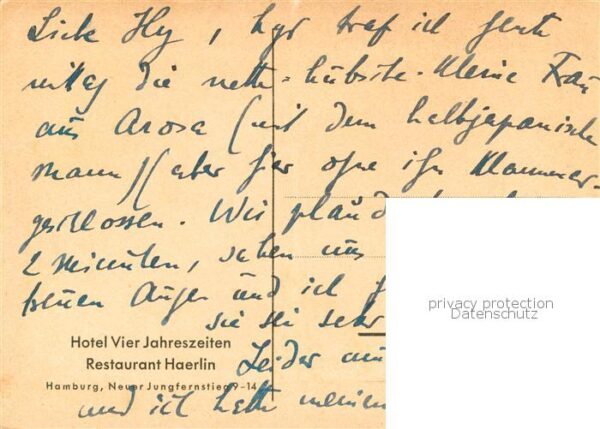 Liebe Hly, hier traf ich heute
mittag die nette-hübsche-kleine Frau
aus Arosa (mit dem halbjapanischen
Mann) (aber hier ohne ihn Klammer-
geschlossen. Wir plaud
2 Minuten, sahen uns
treuen Augen und ich
sie sei sehr
Hotel Vier Jahreszeiten
Restaurant Haerlin
Leider
Hamburg, Neuer Jungfernstieg 9-14
und ich hatte meinen
privacy protection
Datenschutz